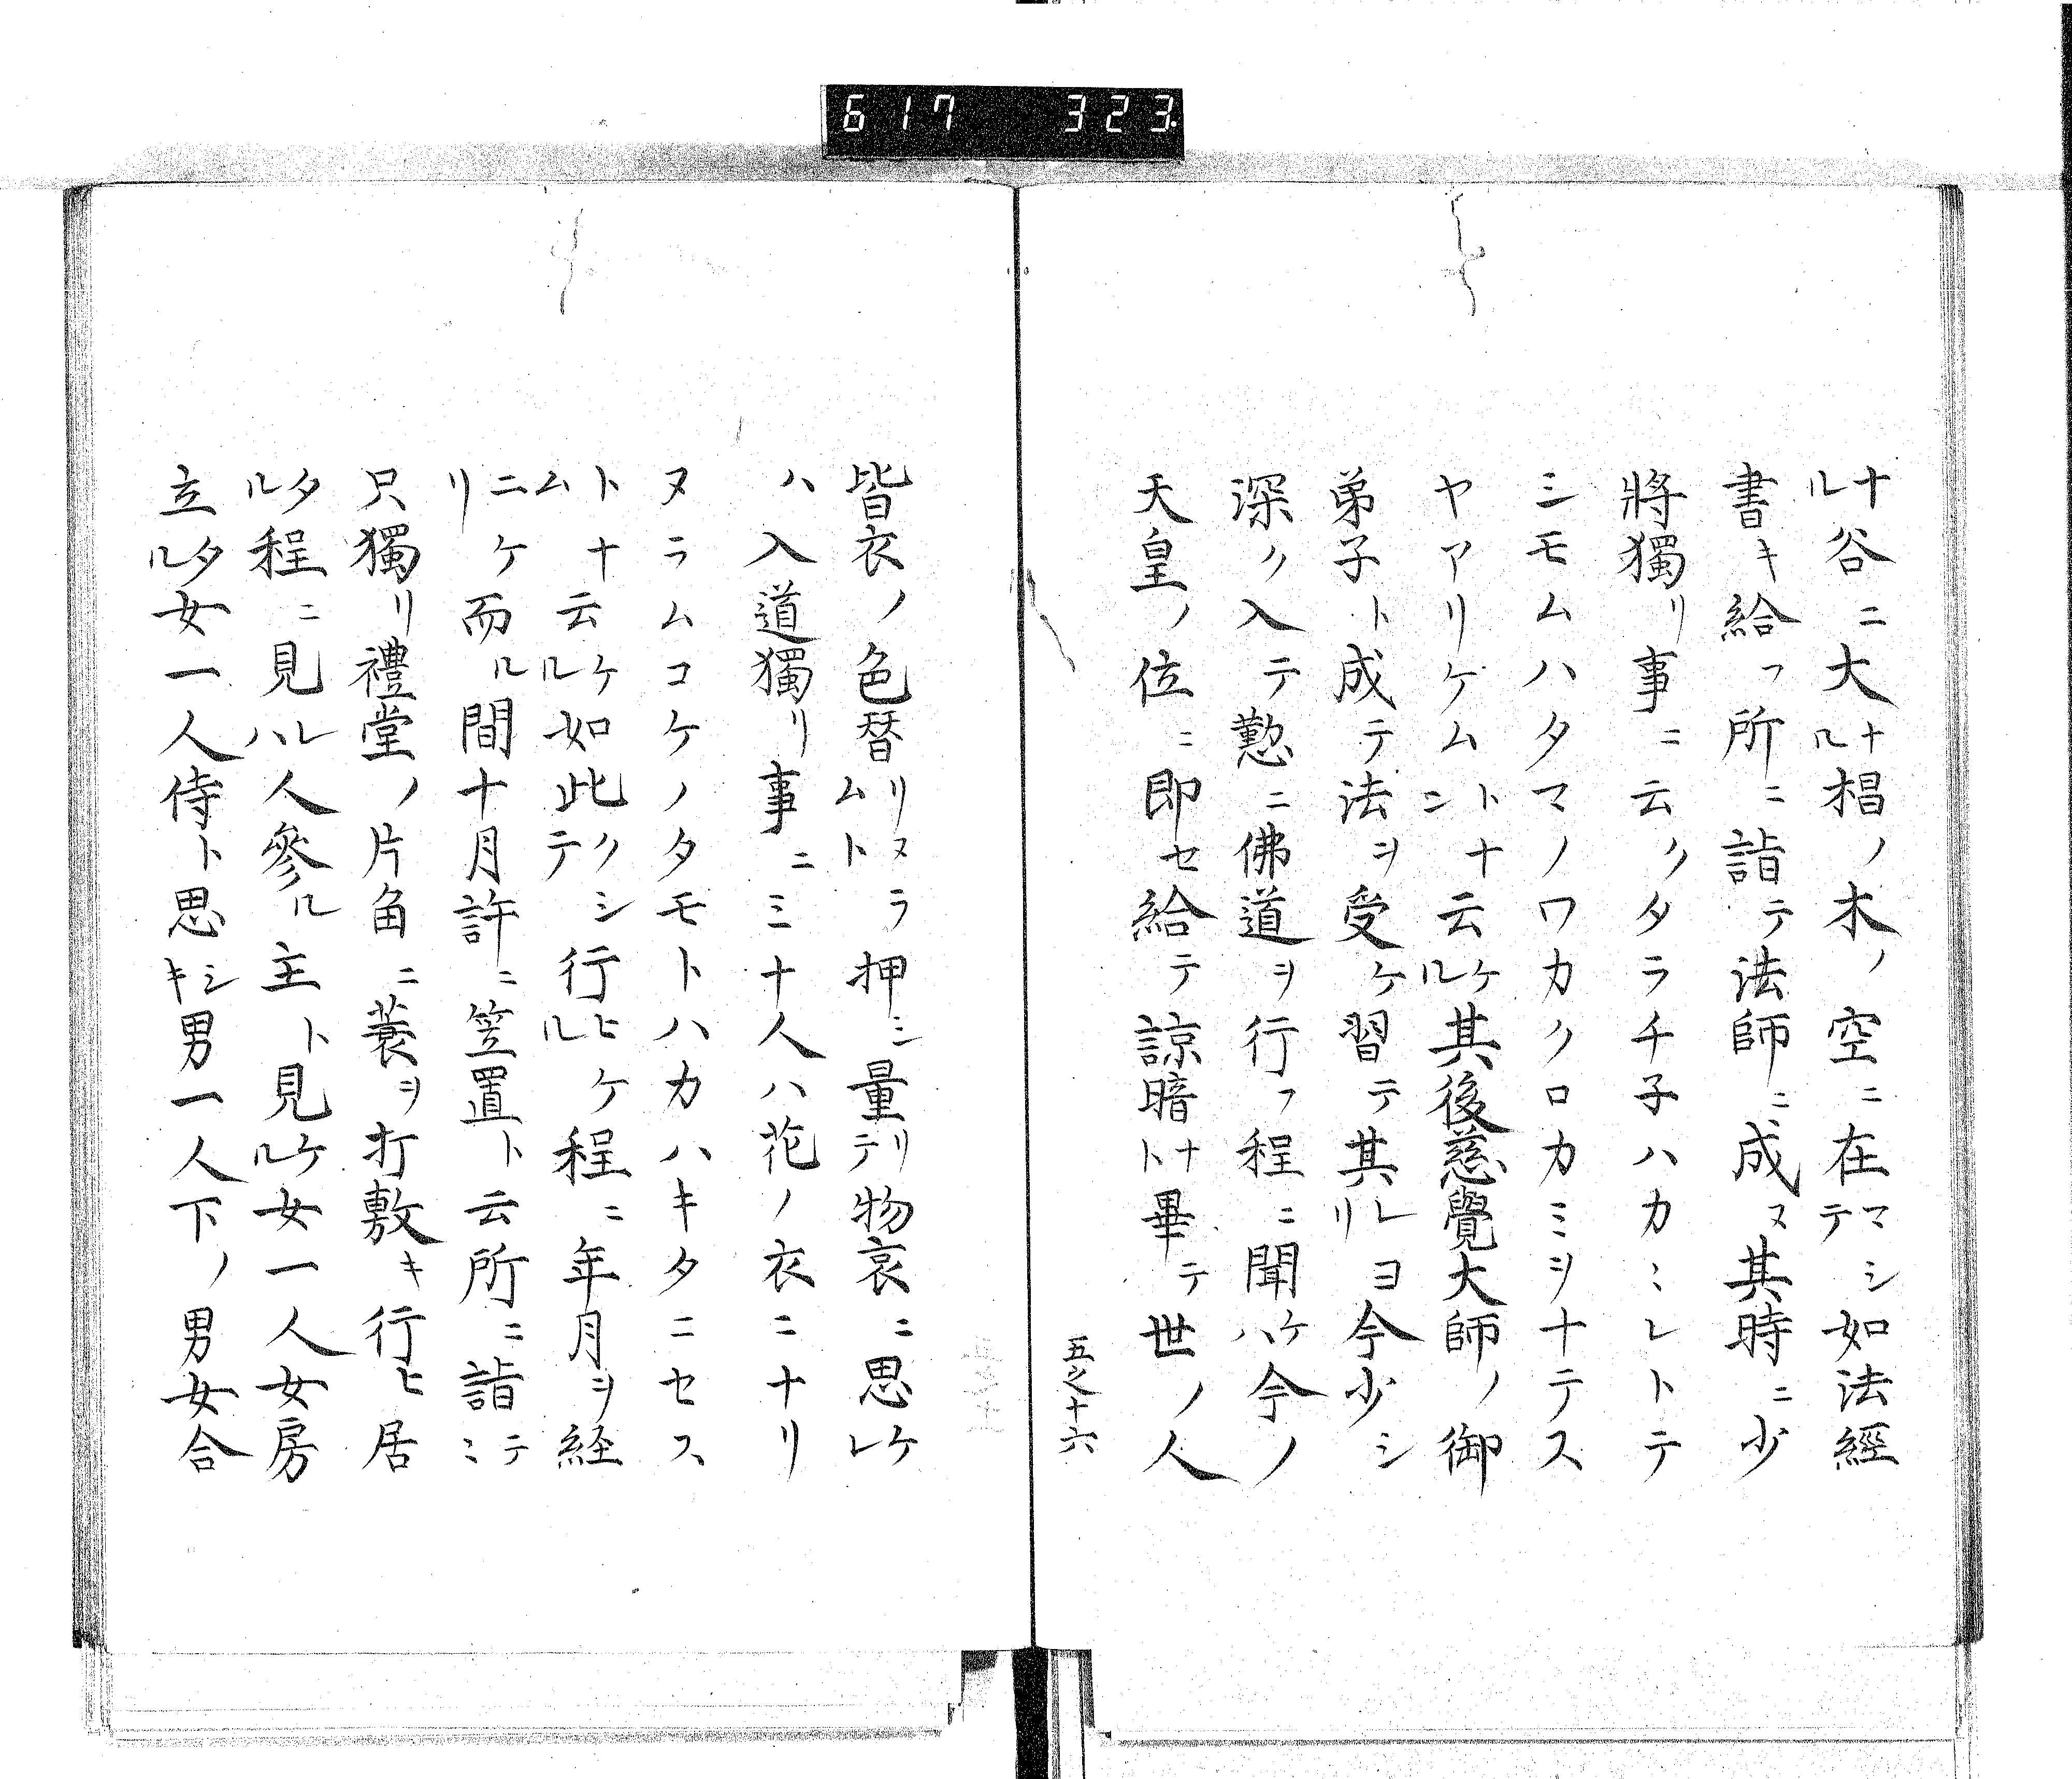 617 323
ナル谷ニ大ナル椙ノ木ノ空ニ在マシテ如法經
書キ給フ所ニ詣テ法師ニ成ヌ其時ニ少
將獨リ事ニ云クタラチ子ハカミレトテ
シモムハタマノワカクロカミヲナテス
ヤアリケムトナンナ云ケル其後慈覺大師ノ御
弟子ト成テ法ヲ受ケ習テ其レヨリ今少シ
深ク入テ懃ニ佛道ヲ行フ程ニ聞ケハ今ノ
天皇ノ位ニ即セ給テ諒暗ナト畢テ世ノ人
五之十六
皆衣ノ色替リヌラムト押シ量リテ物哀ニ思ケレ
ハ入道獨リ事ニミナ人ハ花ノ衣ニナリ
ヌラムコケノタモトハカハキタニセス
トナム云ケル如此クシテ行ヒケル程ニ年月ヲ経
ニケリ而ル間十月許ニ笠置ト云所ニ詣テミ
只獨リ禮堂ノ片角ニ蓑ヲ打敷キ行ヒ居
タル程ニ見レハ人參ル主ト見ケル女一人女房
立タル女一人侍ト思シキ男一人下ノ男女合